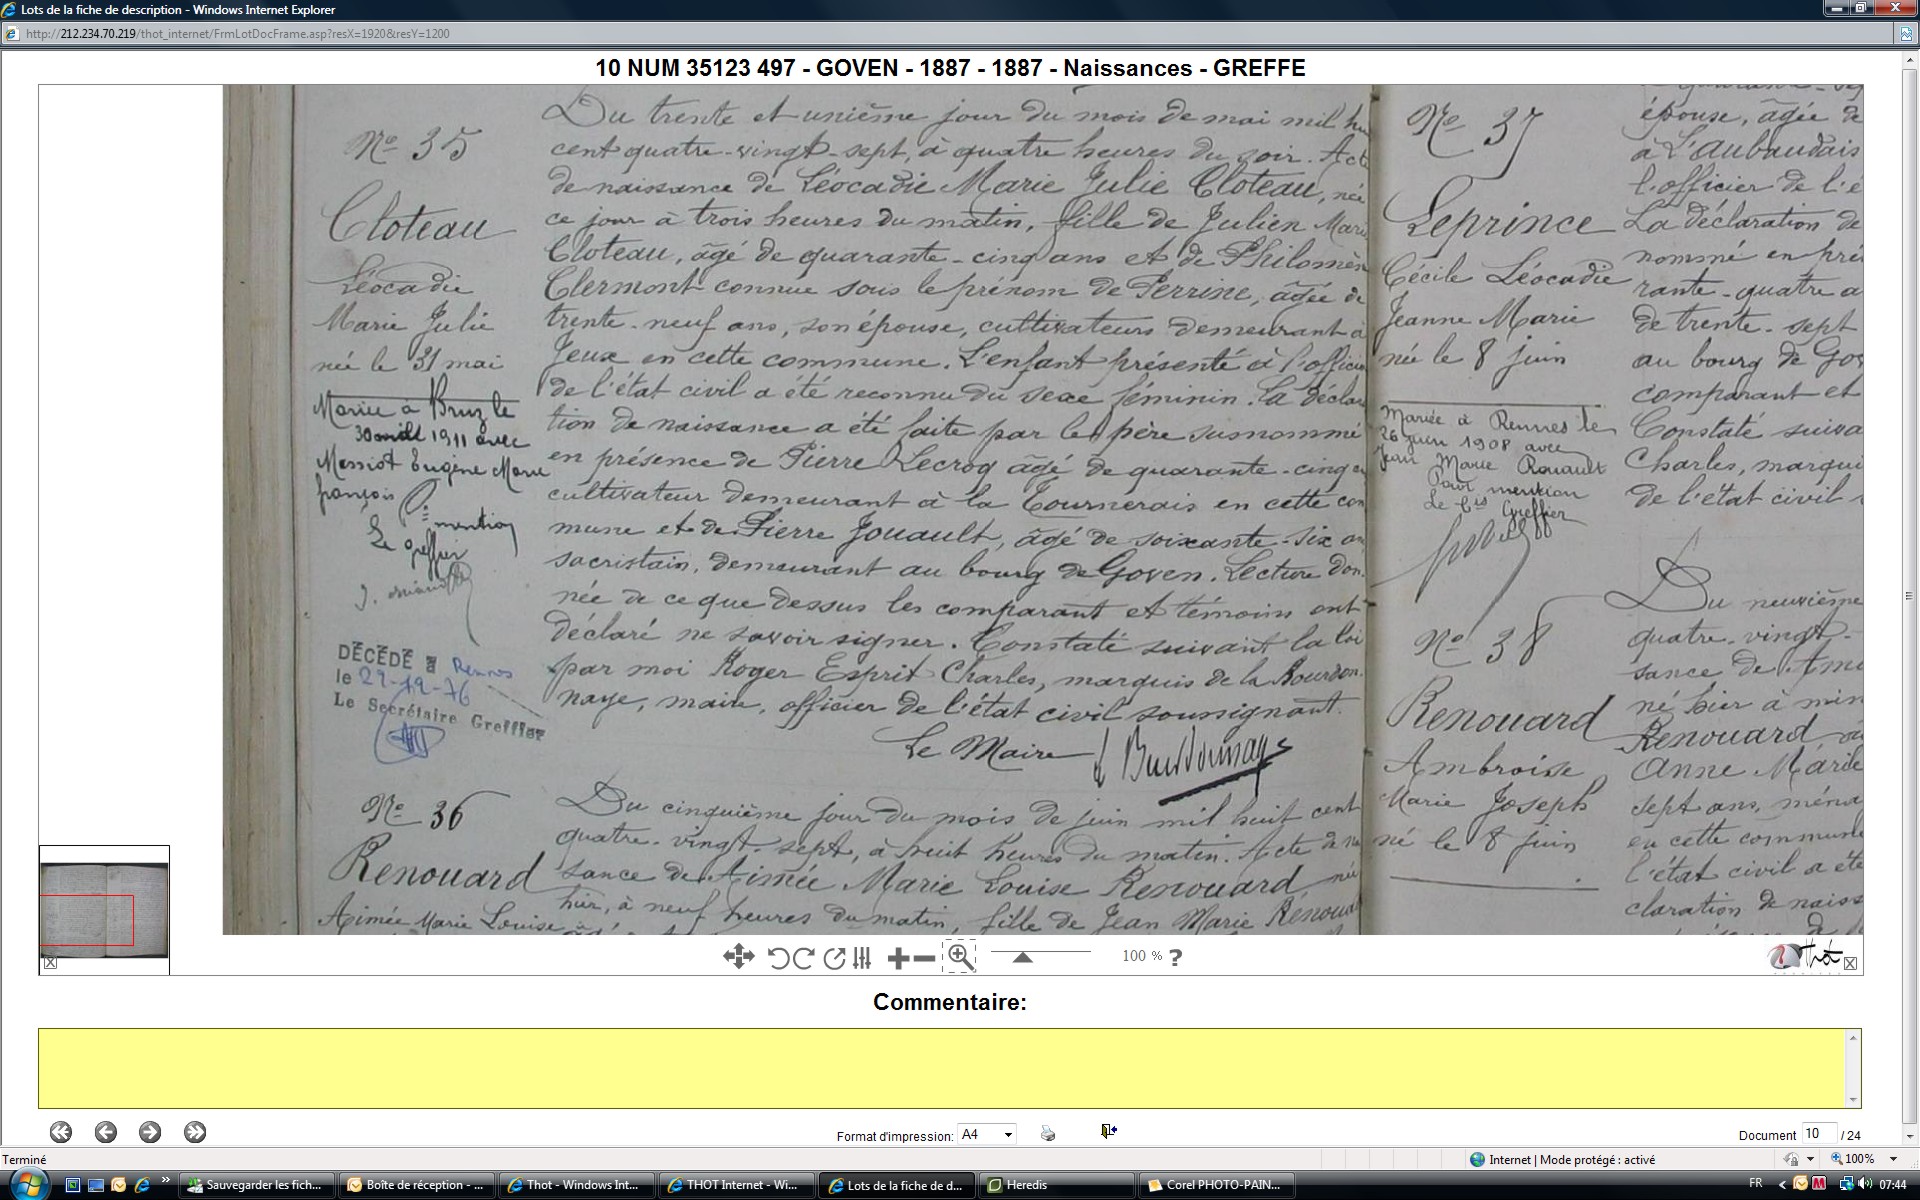 Lots de la fiche de description - Windows Internet Explorer
http://212.234.70.219/thot_internet/FrmLotDocFrame.asp?resX=1920&resY=1200
10 NUM 35123 497 - GOVEN - 1887 - 1887 - Naissances - GREFFE
No 35
Cloteau
Léocadie
Marie Julie
née le 31 mai
Mariée à Bruz le
30 avril 1911 avec
Massiot Eugène Marie
françois
P. mention
Le greffier
DÉCÉDÉ à Rennes
le 29-12-76
Le Secrétaire Greffier
Du trente et unième jour du mois de mai mil hu
cent quatre-vingt-sept, à quatre heures du soir. Acte
de naissance de Léocadie Marie Julie Cloteau, née
ce jour à trois heures du matin, fille de Julien Marie
Cloteau, âgé de quarante-cinq ans et de Philomèn
Clermont connue sous le prénom de Perrine, âgée de
trente-neuf ans, son épouse, cultivateurs demeurant à
Jeux en cette commune. L'enfant présenté à l'officier
de l'état civil a été reconnu du sexe féminin. La déclara
tion de naissance a été faite par le père susnommé
en présence de Pierre Lecroq âgé de quarante-cinq
cultivateur demeurant à la Tournerais en cette com
mune et de Pierre Jouault, âgé de soixante-six an
sacristain, demeurant au bourg de Goven. Lecture don
née de ce que dessus les comparant et témoins ont
déclaré ne savoir signer. Constaté suivant la loi
par moi Roger Esprit Charles, marquis de la Bourdon
naye, maire, officier de l'état civil soussignant.
Le Maire
No 36
Renouard
Aimée Marie Louise
Du cinquième jour du mois de juin mil huit cent
quatre-vingt-sept, à huit heures du matin. Acte de na
sance de Aimée Marie Louise Renouard, née
hier, à neuf heures du matin, fille de Jean Marie Renoua
No 37
Leprince
Cécile Léocadie
Jeanne Marie
née le 8 juin
Mariée à Rennes le
26 juin 1908 avec
Jean Marie Rouault
Pour mention
Le Cis Greffier
No 38
Renouard
Ambroise
Marie Joseph
né le 8 juin
épouse, âgée de
à L'aubaudais
l'officier de l'é
La déclaration de
nommé en pré
rante-quatre a
de trente-sept
au bourg de Gov
comparant et
Constaté suiva
Charles, marqui
de l'état civil
Du neuvième
quatre-vingt-
sance de Am
né hier à min
Renouard
Anne Marie
sept ans, ména
en cette commune
l'état civil a été
claration de naiss
100 % ?
Thot
Commentaire:
Format d'impression: A4
Document 10 / 24
Terminé
Internet | Mode protégé : activé
100%
Sauvegarder les fich...
Boîte de réception - ...
Thot - Windows Int...
THOT Internet - Wi...
Lots de la fiche de d...
Heredis
Corel PHOTO-PAIN...
FR
07:44